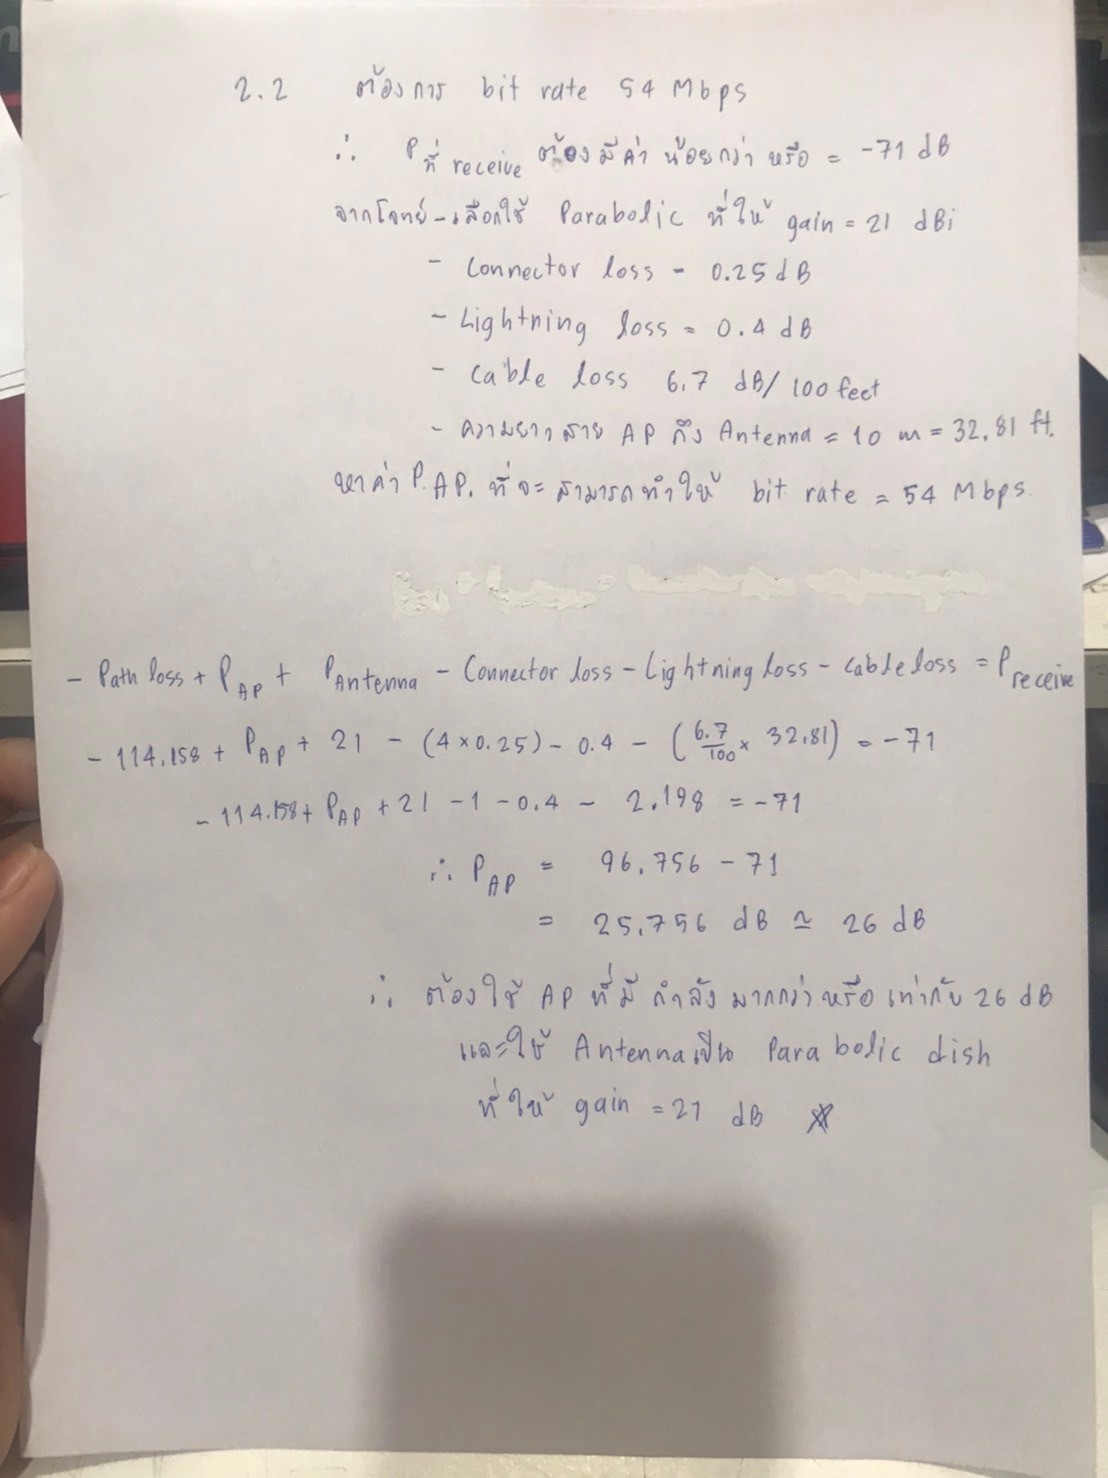 2.2 ต้องการ bit rate 54 Mbps
∴ P ที่ receive ต้องมีค่า น้อยกว่า หรือ = -71 dB
จากโจทย์ - เลือกใช้ Parabolic ที่ให้ gain = 21 dBi
- Connector loss - 0.25 dB
- Lightning loss = 0.4 dB
- Cable loss 6.7 dB/100 feet
- ความยาวสาย AP ถึง Antenna = 10 m = 32.81 ft.
หาค่า P.AP. ที่จะสามารถทำให้ bit rate = 54 Mbps.
- Path loss + P_AP + P_Antenna - Connector loss - Lightning loss - Cable loss = P_receive
- 114.158 + P_AP + 21 - (4 × 0.25) - 0.4 - (6.7/100 × 32.81) = -71
- 114.158 + P_AP + 21 - 1 - 0.4 - 2.198 = -71
∴ P_AP = 96.756 - 71
= 25.756 dB ≃ 26 dB
∴ ต้องใช้ AP ที่มี กำลัง มากกว่า หรือ เท่ากับ 26 dB
และใช้ Antenna เป็น Parabolic dish
ที่ให้ gain = 21 dB